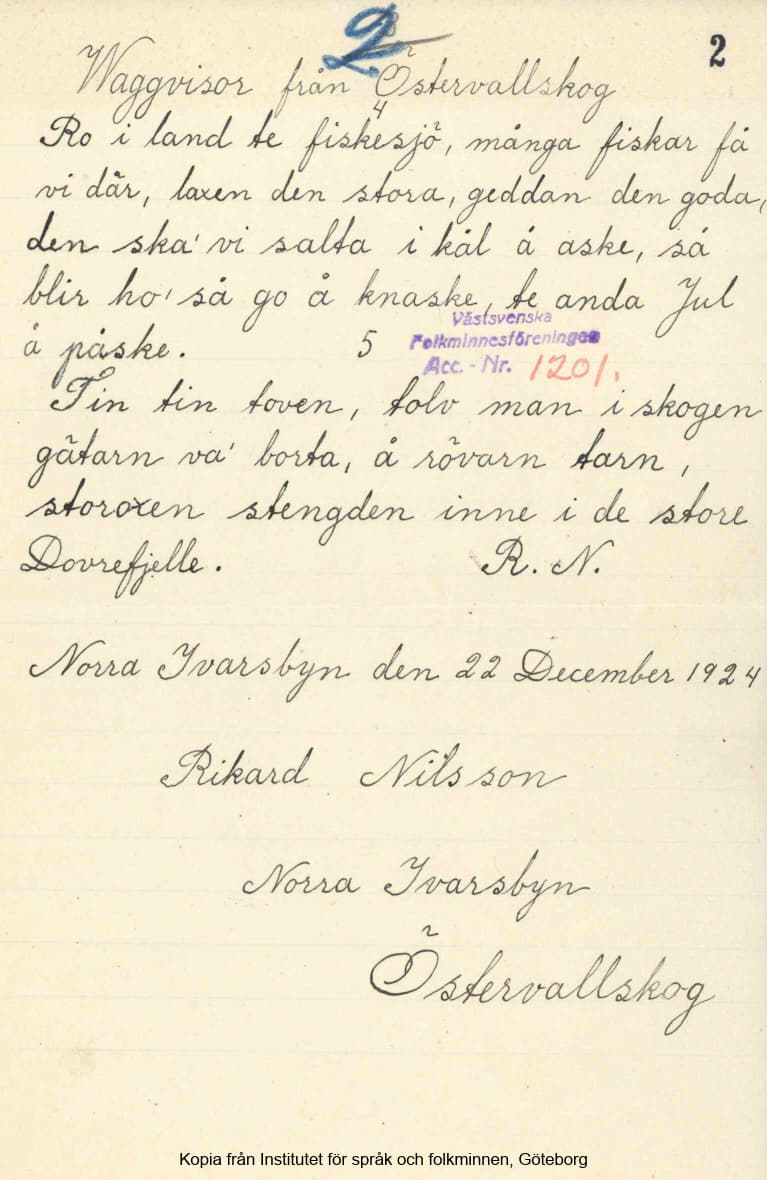 2
2
Waggvisor från Östervallskog
4
Ro i land te fiskesjö, många fiskar få
vi där, laxen den stora, geddan den goda,
den ska' vi salta i kål å aske, så
blir ho' så go å knaske, te anda Jul
å påske.
5
Västsvenska
Folkminnesföreningen
Acc.-Nr. 1201.
Tin tin toven, tolv man i skogen
gätarn va' borta, å rövarn tarn,
storoxen stengden inne i de store
Dovrefjelle. R. N.
Norra Ivarsbyn den 22 December 1924
Rikard Nilsson
Norra Ivarsbyn
Östervallskog
Kopia från Institutet för språk och folkminnen, Göteborg